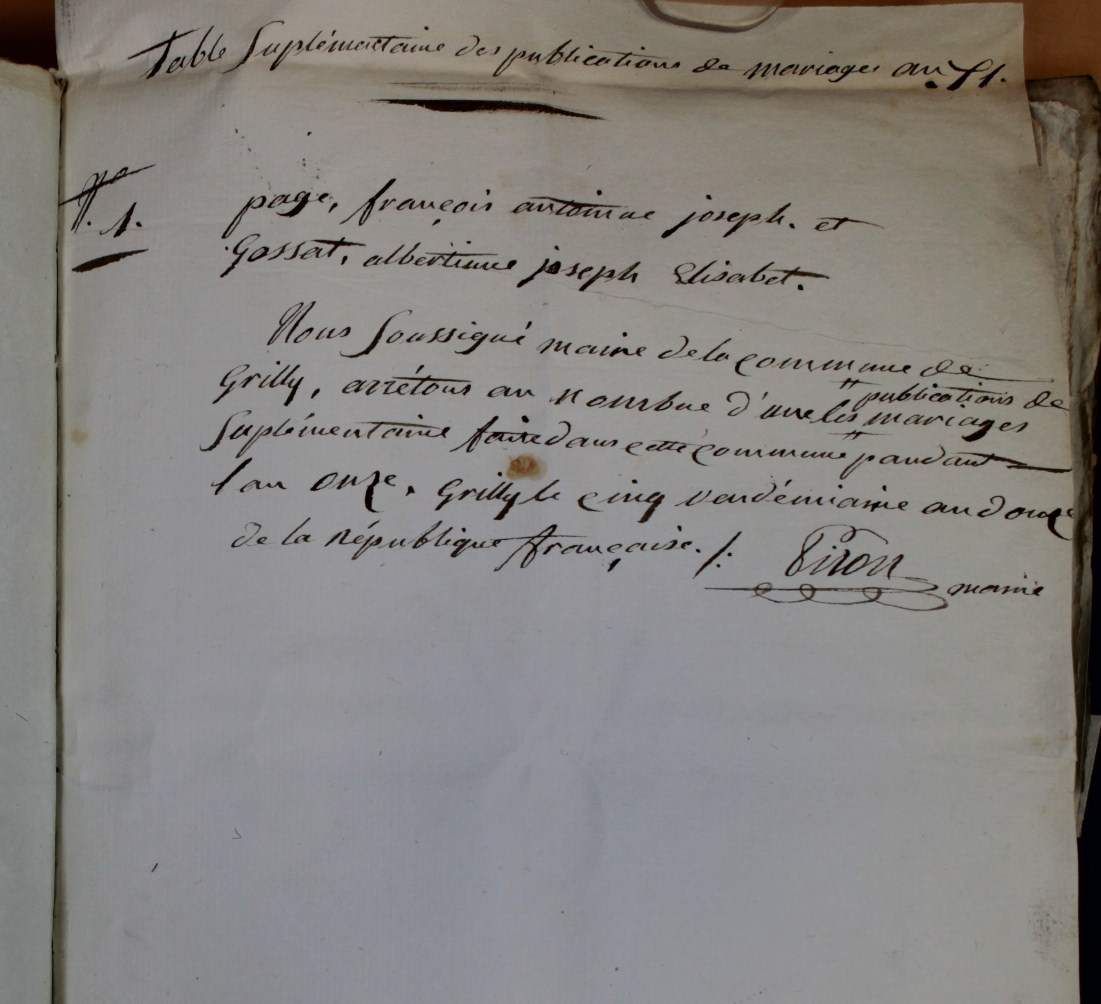 Table Suplémentaire des publications de mariages an 11.
N.o 1.
page, françois antoinne joseph. et
Gossat, albertinne joseph Elisabet.
Nous Soussigné maire de la commune de
Grilly, arrêtons au nombre d'une les publications de
mariages
Suplémentaire faite dans cette commune pandant
l'an onze. Grilly le cinq vendémiaire an douze
de la république française. /.
Piron
maire